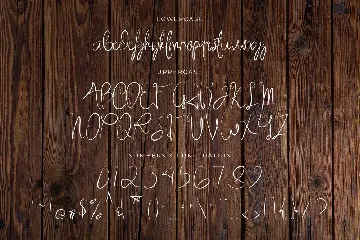 LOWERCASE
abcdefghijklmnopqrstuvwxyz
UPPERCASE
ABCDEFGHIJKLM
NOPQRSTUVWXYZ
NUMBERS & PUNCTUATION
0123456789